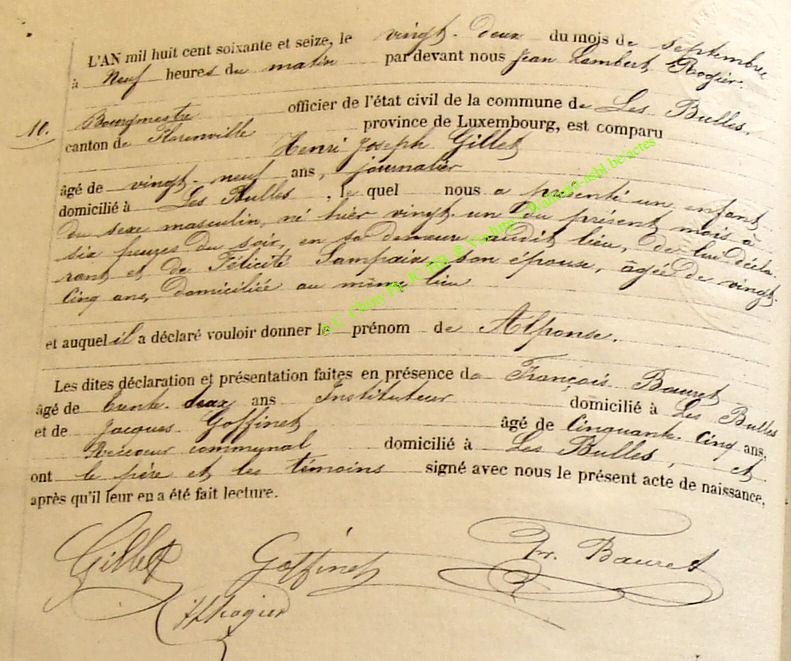 L'AN mil huit cent soixante et seize, le vingt-deux du mois de septembre
à Neuf heures du matin par devant nous Jean Lambert Rogier.
10. Bourgmestre officier de l'état civil de la commune de Les Bulles.
canton de Florenville province de Luxembourg, est comparu
Henri Joseph Gillet
âgé de vingt-neuf ans, journalier
domicilié à Les Bulles, le quel nous a présenté un enfant
du sexe masculin, né hier vingt-un du présent mois à
six heures du soir, en sa demeure audit lieu, de lui décla-
rant et de Félicité Lampaire son épouse, âgée de vingt-
cinq ans, domiciliée au même lieu
et auquel il a déclaré vouloir donner le prénom de Alponse.
Les dites déclaration et présentation faites en présence de François Bauret
âgé de trente deux ans Instituteur domicilié à Les Bulles
et de Jacques Goffinet âgé de Cinquante Cinq ans,
Receveur communal domicilié à Les Bulles, et
ont le père et les témoins signé avec nous le présent acte de naissance,
après qu'il leur en a été fait lecture.
Gillet Goffinet Fr. Bauret
JLRogier